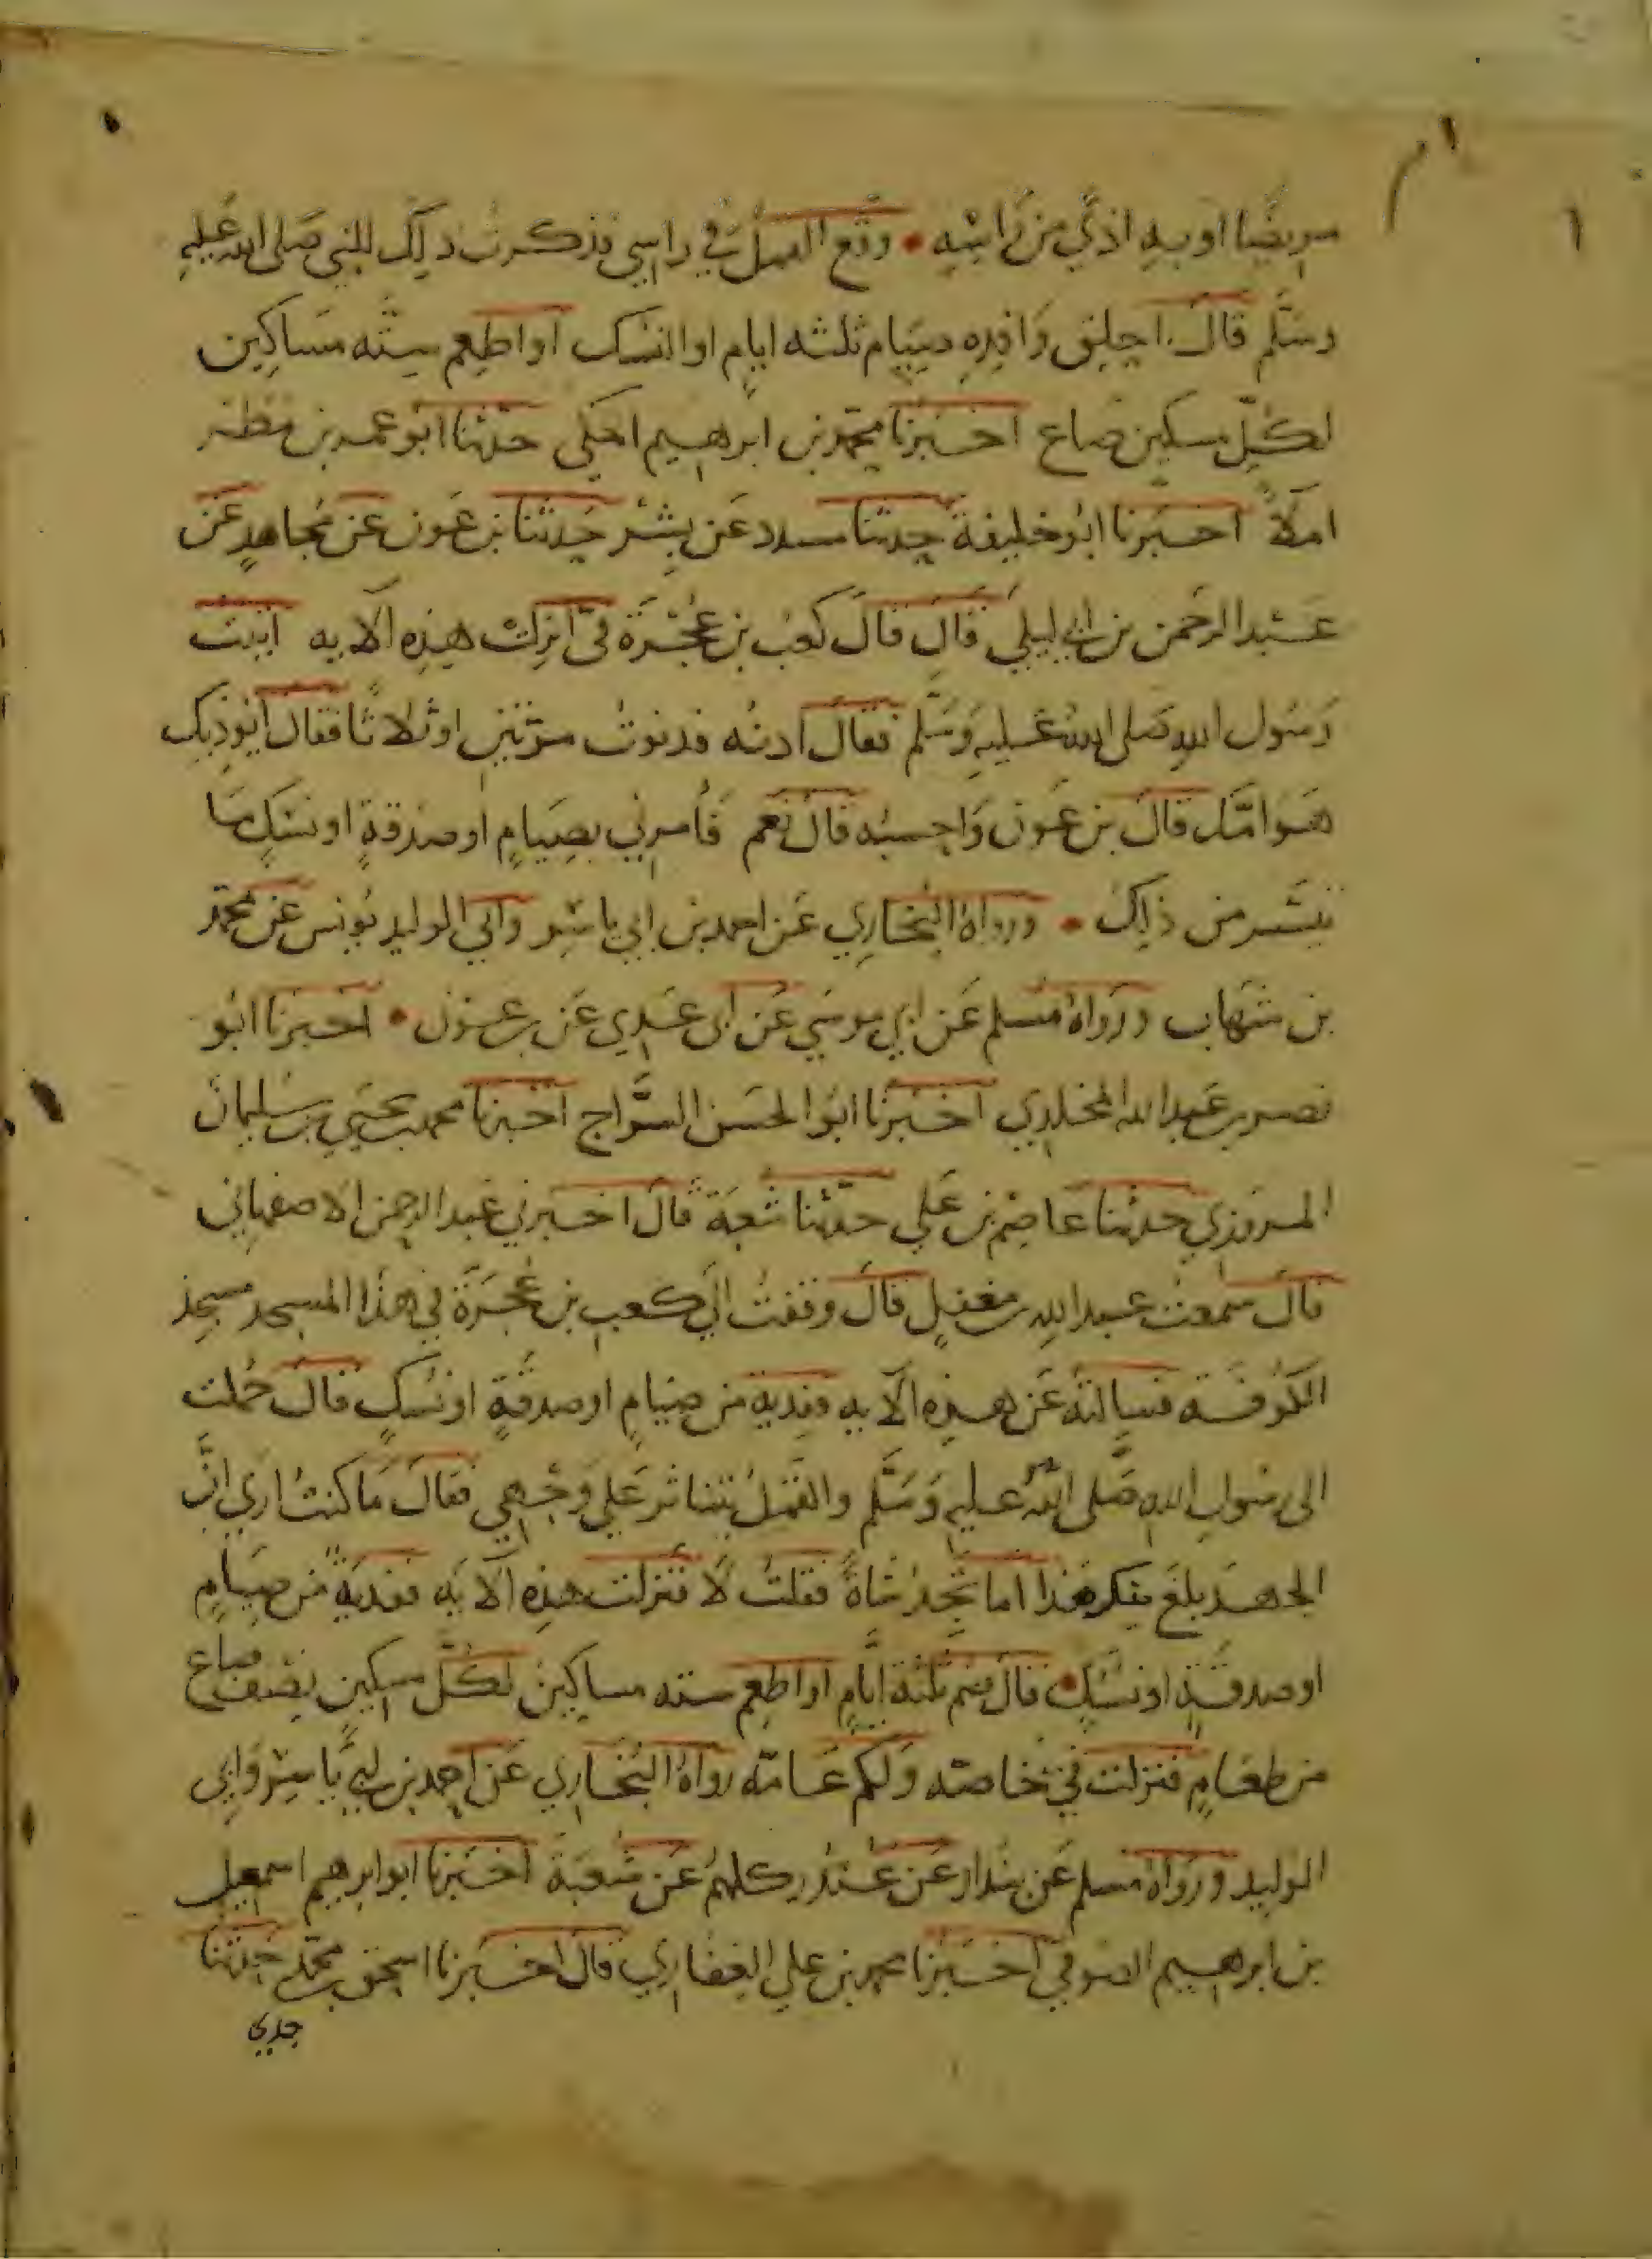 مريضا او به اذي من راسه • وقع القمل في راسي فذكرت ذلك للنبي صلى الله عليه
وسلم قال احلق وافده صيام ثلثه ايام او النسك او اطعم سته مساكين
لكل مسكين صاع اخبرنا محمد بن ابرهيم المكي حدثنا ابو عمد بن مطر
املاً اخبرنا ابو خليفة حدثنا مسدد عن بشر حدثنا بن عون عن مجاهد عن
عبد الرحمن بن ابي ليلي قال قال كعب بن عجرة فيّ انزلت هذه الايه اتيت
رسول الله صلى الله عليه وسلم فقال ادنه فدنوت مرتين او ثلاثا فقال ايوذيك
هوامك قال بن عون واحسبه قال نعم فأمرني بصيام او صدقة او نسك ما
تيسر من ذلك • ورواه البخاري عن احمد بن ابي ياسر وابي الوليد يونس عن محمد
بن شهاب ورواه مسلم عن ابي موسي عن ابي عدي عن بن عون • اخبرنا ابو
نصر بن عبد الله المخلدي اخبرنا ابو الحسن السراج اخبرنا محمد بن يحيي بن سليمان
المروزي حدثنا عاصم بن علي حدثنا شعبة قال اخبرني عبد الرحمن الاصفهاني
قال سمعت عبد الله بن مغفل قال وقفت الي كعب بن عجرة في هذا المسجد مسجد
الكوفة فسالته عن هذه الايه ففدية من صيام او صدقة او نسك قال حملت
الى رسول الله صلى الله عليه وسلم والقمل يتناثر علي وجهي فقال ما كنت اري ان
الجهد بلغ بك هذا اما تجد شاة فقلت لا فنزلت هذه الايه ففدية من صيام
او صدقة او نسك • قال صم ثلثة ايام او اطعم سته مساكين لكل مسكين نصف صاع
من طعام فنزلت في خاصته ولكم عامه رواه البخاري عن احمد بن ابي ياسر وابي
الوليد ورواه مسلم عن بندار عن غندر كلهم عن شعبة اخبرنا ابو ابرهيم اسمعيل
بن ابرهيم الصوفي اخبرنا محمد بن علي الغفاري قال اخبرنا اسحق بن محمد حدثنا
جدي